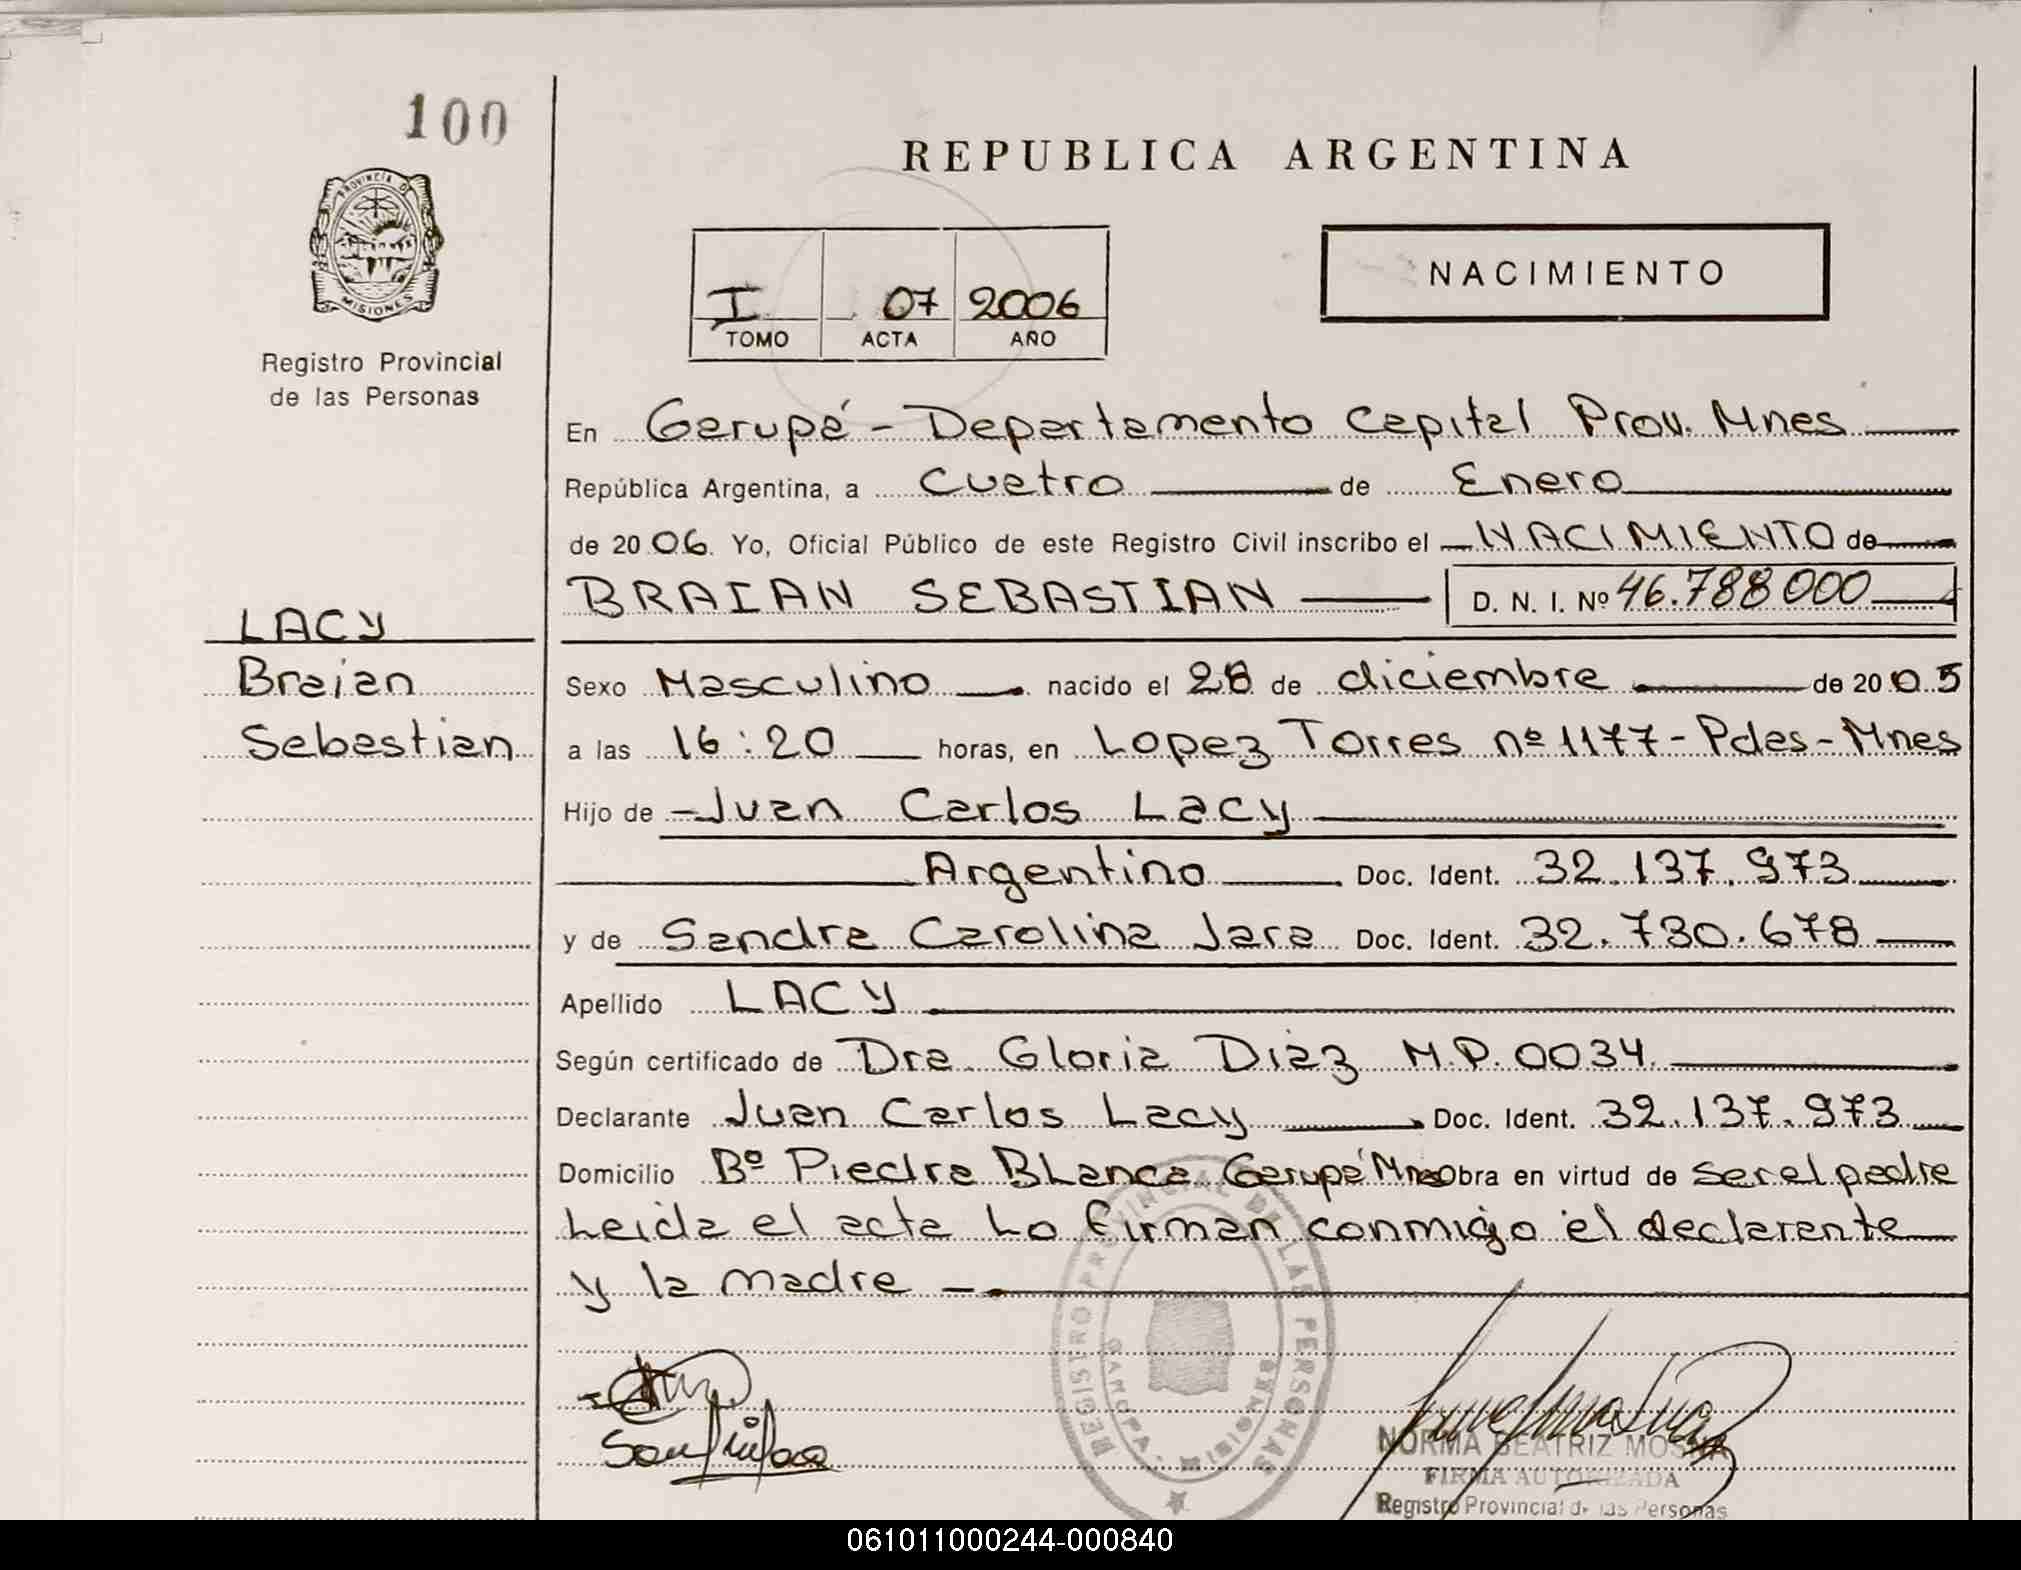 100
REPUBLICA ARGENTINA
PROVINCIA DE
MISIONES
Registro Provincial
de las Personas
NACIMIENTO
I 07 2006
TOMO ACTA AÑO
En Garupá - Departamento Capital Prov. Mnes
República Argentina, a Cuatro de Enero
de 2006. Yo, Oficial Público de este Registro Civil inscribo el NACIMIENTO de
BRAIAN SEBASTIAN D. N. I. Nº 46.788 000
LACY
Braian
Sebastian
Sexo Masculino nacido el 28 de diciembre de 2005
a las 16:20 horas, en Lopez Torres nº 1177 - Pdas - Mnes
Hijo de - Juan Carlos Lacy
Argentino Doc. Ident. 32.137.973
y de Sandra Carolina Jara Doc. Ident. 32.730.678
Apellido LACY
Según certificado de Dra. Gloria Diaz M.P. 0034.
Declarante Juan Carlos Lacy Doc. Ident. 32.137.973
Domicilio Bº Piedra Blanca Garupá Mnes obra en virtud de ser el padre
Leida el acta Lo firman conmigo el declarante
y la madre -
REGISTRO PROVINCIAL DE LAS PERSONAS
GARUPA - MISIONES
NORMA BEATRIZ
FIRMA AUTORIZADA
Registro Provincial de las Personas
061011000244-000840